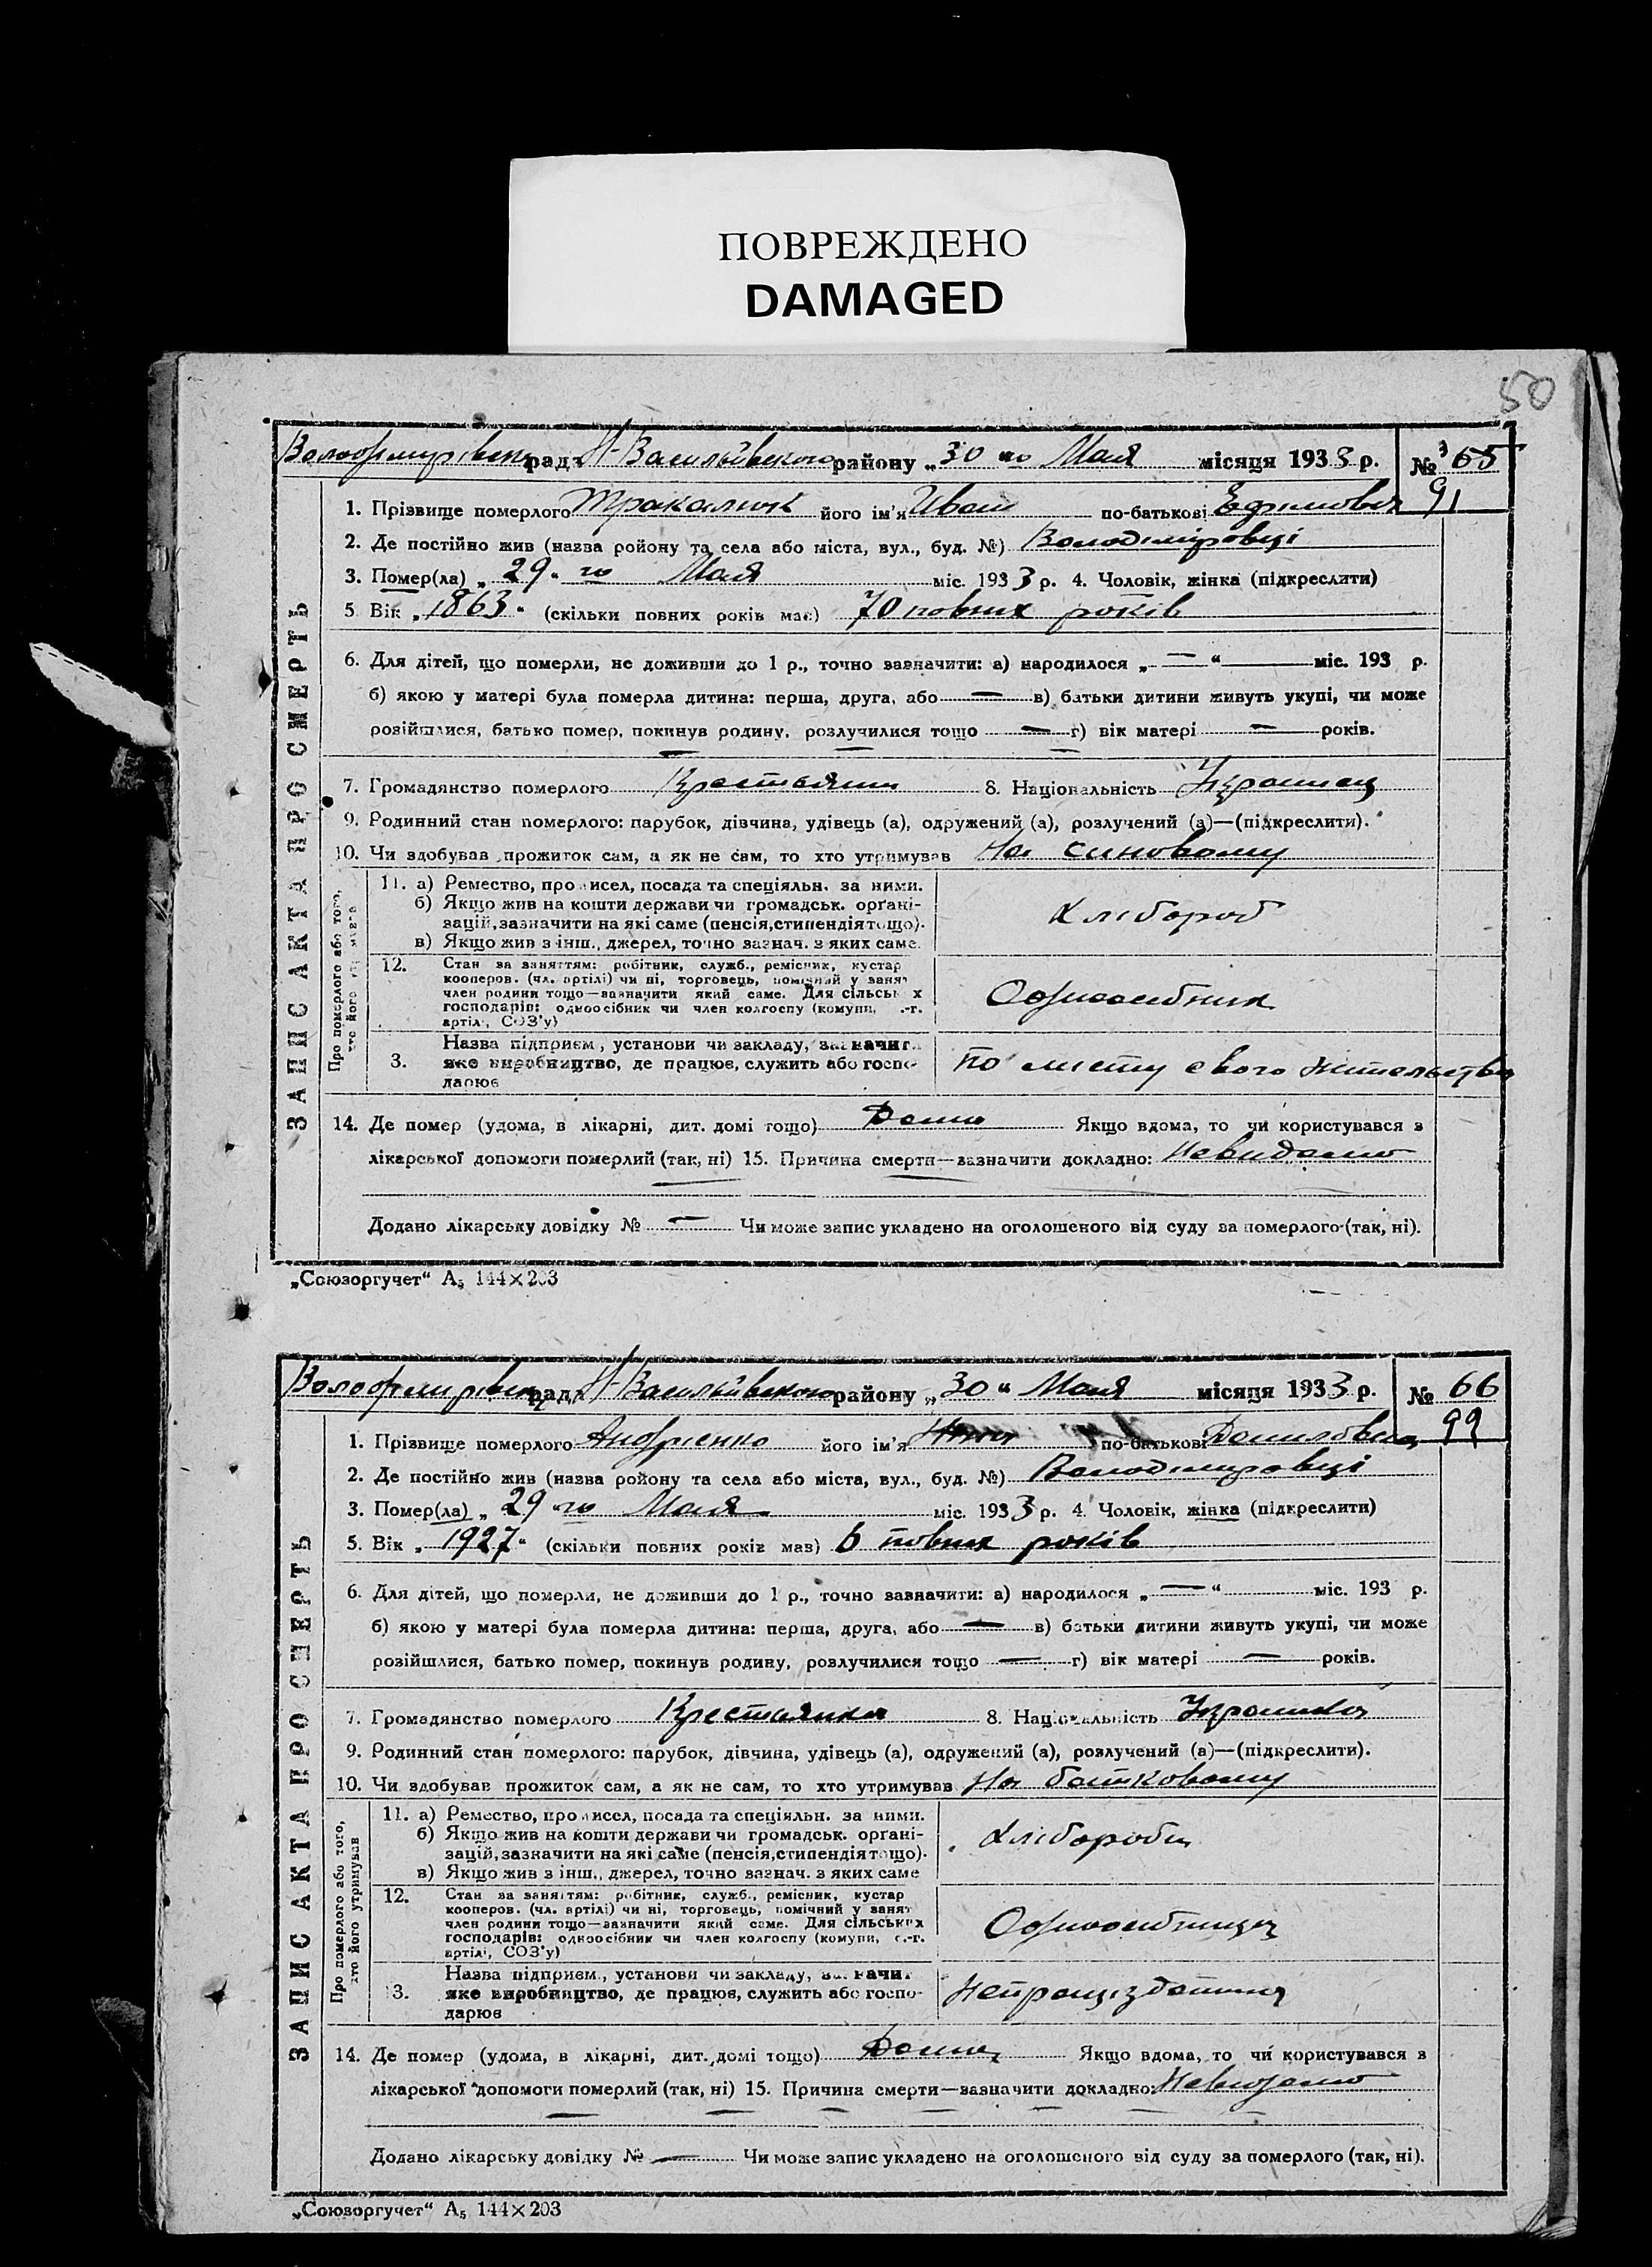 ПОВРЕЖДЕНО
DAMAGED
50
рад Н-Васильівского району „30 го Мая місяця 1933 р. № 65
91
1. Прізвище померлого Тракалюк його ім'я Иван по-батькові Ефимович
2. Де постійно жив (назва ройону та села або міста, вул., буд. №) Володіміровці
3. Помер(ла) „ 29 “ го Мая міс. 1933 р. 4. Чоловік, жінка (підкреслити)
5 Вік „ 1863 “ (скільки повних років має) 70 повних років
6. Для дітей, що померли, не доживши до 1 р., точно зазначити: а) народилося „ — “ міс. 193 р.
б) якою у матері була померла дитина: перша, друга, або — в) батьки дитини живуть укупі, чи може
розійшлися, батько помер, покинув родину, розлучилися тощо — г) вік матері — років.
7. Громадянство померлого Крестьянин 8. Національність Украинец
9. Родинний стан померлого: парубок, дівчина, удівець (а), одружений (а), розлучений (а)—(підкреслити).
10. Чи здобував прожиток сам, а як не сам, то хто утримував На синовому
ЗАПИС АКТА ПРО СМЕРТЬ
Про померлого або того,
хто його
11. а) Ремество, про исел, посада та спеціяльн. за ними.
б) Якщо жив на кошти держави чи громадськ. органі-
зацій, зазначити на які саме (пенсія, стипендія тощо).
в) Якщо жив з інш., джерел, точно зазнач. з яких саме.
Хлібороб
12. Стан за заняттям: робітник, служб., ремісник, кустар
кооперов. (чл. артілі) чи ні, торговець, помічний у занят
член родини тощо—зазначити який саме. Для сільськ х
господарів: одноосібник чи член колгоспу (комуни, .-г.
артіл, СОЗ'у)
Одноосібник
3. Назва підприєм, установи чи закладу, зазначит
яке виробництво, де працює, служить або госпо-
дарює
по місту свого жительства
14. Де помер (удома, в лікарні, дит. домі тощо) Дома Якщо вдома, то чи користувався з
лікарської допомоги померлий (так, ні) 15. Причина смерти—зазначити докладно: Невидомо
Додано лікарську довідку № — Чи може запис укладено на оголошеного від суду за померлого (так, ні).
„Союзоргучет“ А₅ 144×203
рад Н-Васильівского району „30“ Мая місяця 1933 р. № 66
99
1. Прізвище померлого Андрієнко його ім'я по-батькові Даниловна
2. Де постійно жив (назва ройону та села або міста, вул., буд. №) Володіміровці
3. Помер(ла) „ 29 “ го Мая міс. 1933 р. 4. Чоловік, жінка (підкреслити)
5. Вік „ 1927 “ (скільки повних років мав) 6 повних років
6. Для дітей, що померли, не доживши до 1 р., точно зазначити: а) народилося „ — “ міс. 193 р.
б) якою у матері була померла дитина: перша, друга, або — в) батьки дитини живуть укупі, чи може
розійшлися, батько помер, покинув родину, розлучилися тощо — г) вік матері — років.
7. Громадянство померлого Крестьянка 8. Національність Украинка
9. Родинний стан померлого: парубок, дівчина, удівець (а), одружений (а), розлучений (а)—(підкреслити).
10. Чи здобував прожиток сам, а як не сам, то хто утримував На батьковому
ЗАПИС АКТА ПРО СМЕРТЬ
Про померлого або того,
хто його утримував
11. а) Ремество, про исел, посада та спеціяльн. за ними.
б) Якщо жив на кошти держави чи громадськ. органі-
зацій, зазначити на які саме (пенсія, стипендія тощо).
в) Якщо жив з інш., джерел, точно зазнач. з яких саме
Хлібороби
12. Стан за заняттям: робітник, служб., ремісник, кустар
кооперов. (чл. артілі) чи ні, торговець, помічний у занят
член родини тощо—зазначити який саме. Для сільських
господарів: одноосібник чи член колгоспу (комуни, с.-г.
артілі, СОЗ'у)
Одноосібниця
3. Назва підприєм., установи чи закладу, зазначит
яке виробництво, де працює, служить або госпо-
дарює
Непрацездатния
14. Де помер (удома, в лікарні, дит. домі тощо) Дома Якщо вдома, то чи користувався з
лікарської допомоги померлий (так, ні) 15. Причина смерти—зазначити докладно: Невидомо
Додано лікарську довідку № — Чи може запис укладено на оголошеного від суду за померлого (так, ні).
„Союзоргучет“ А₅ 144×203